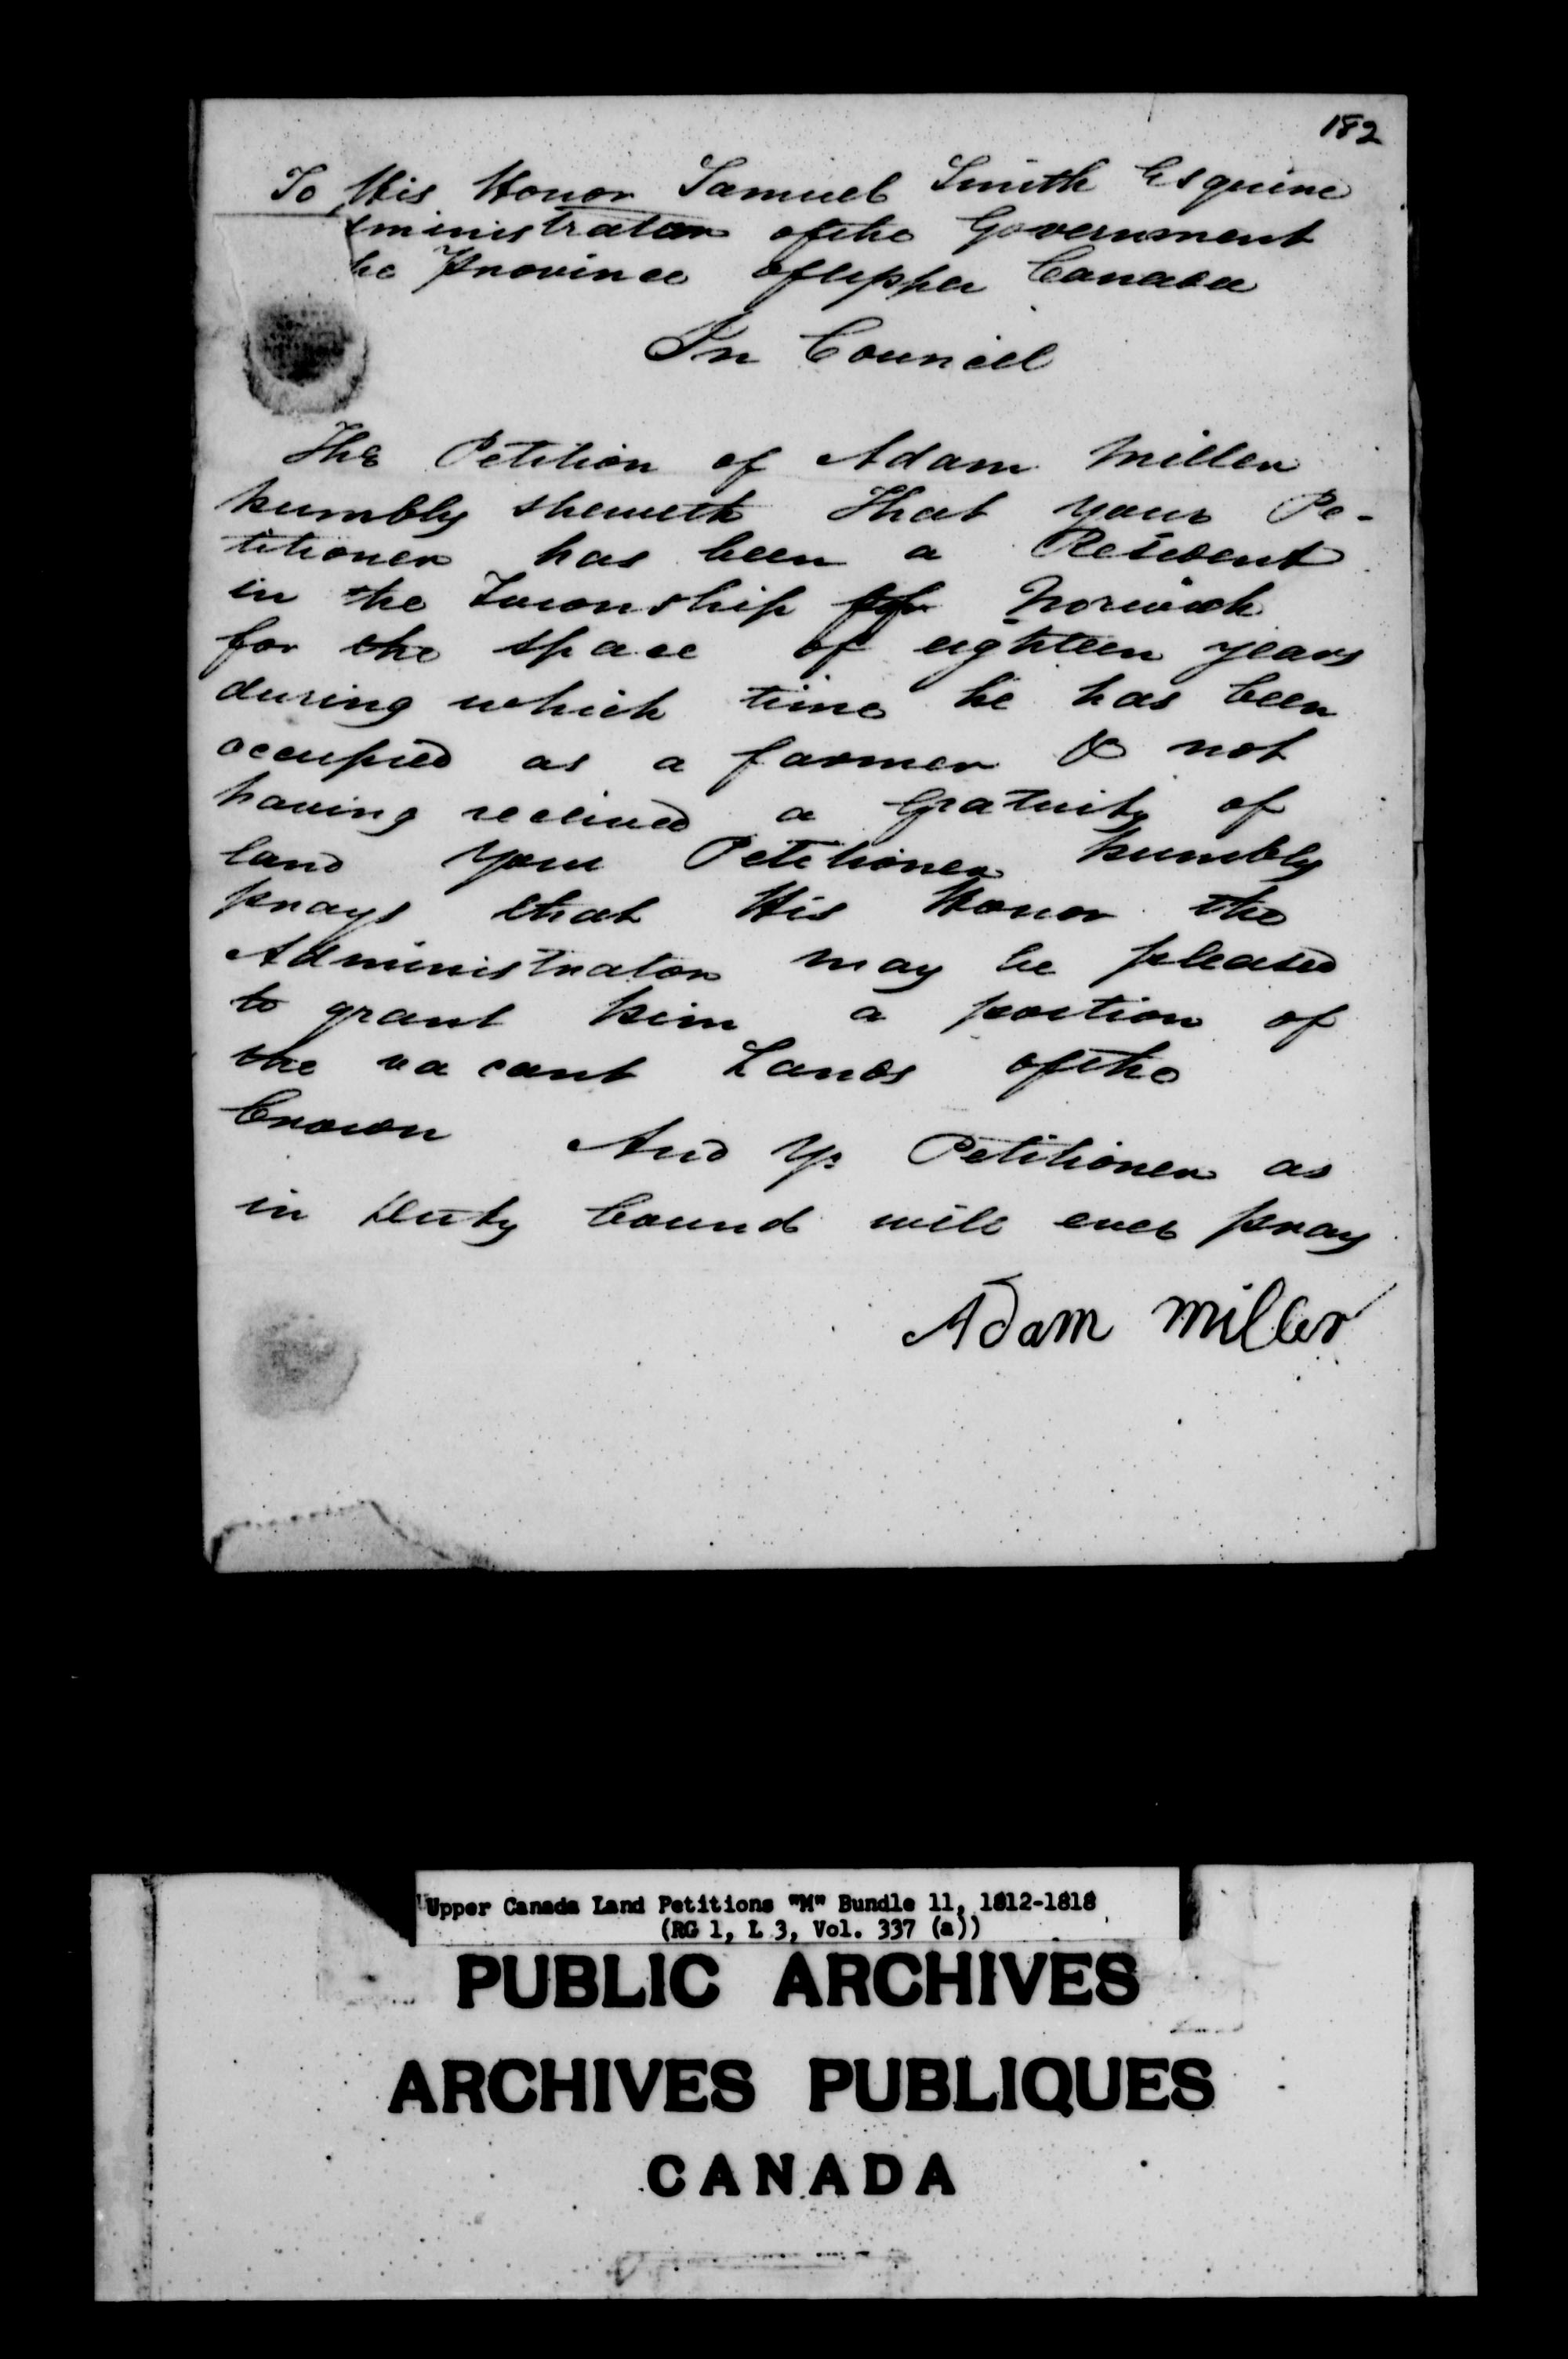 182
To His Honor Samuel Smith Esquire
dministrator of the Government
he Province of Upper Canada
In Council
The Petition of Adam Miller
humbly sheweth That your Pe-
titioner has been a Resident
in the Township of Norwich
for the space of eighteen years
during which time he has been
occupied as a farmer & not
having received a Gratuity of
land Your Petitioner humbly
prays that His Honor the
Administrator may be pleased
to grant him a portion of
the va cant Lands of the
Crown And Yr Petitioner as
in Duty bound will ever pray
Adam Miller
Upper Canada Land Petitions "M" Bundle 11, 1812-1818
(RG 1, L 3, Vol. 337 (a))
PUBLIC ARCHIVES
ARCHIVES PUBLIQUES
CANADA